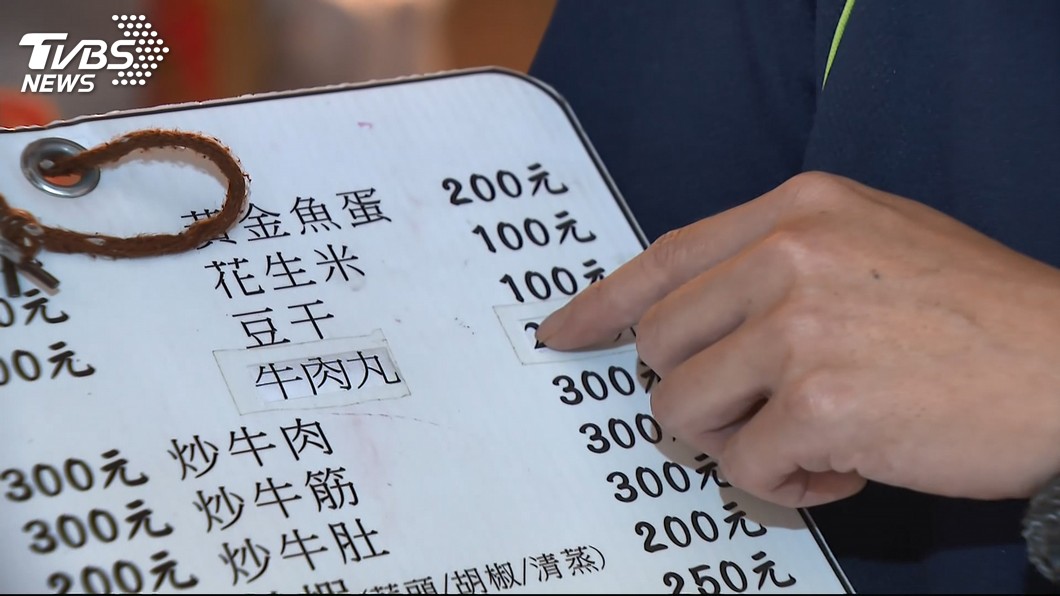 TVBS
NEWS
黃金魚蛋 200元
0元 花生米 100元
00元 豆干 100元
牛肉丸
300元 炒牛肉 300元
300元 炒牛筋 300
200元 炒牛肚 300元
蝦(蒜頭/胡椒/清蒸) 200元
250元